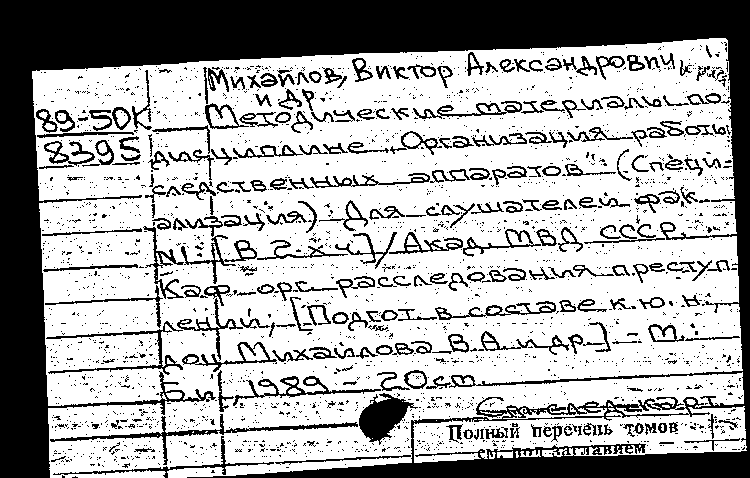 Михайлов, Виктор Александрович,
и др.
89-5ОК Методические материалы по
8395 дисциплине „Организация работы
следственных аппаратов": (Специ-
ализация): Для слушателей фак.
N1: [В 2-х ч.]/Акад. МВД СССР.
Каф. орг. расследования преступ-
лений; [Подгот. в составе к.ю.н.,
доц. Михайлова В.А. и др.] - М.:
Б.и., 1989 - 20 см.
См. след. карт.
Полный перечень томов
см. под заглавием